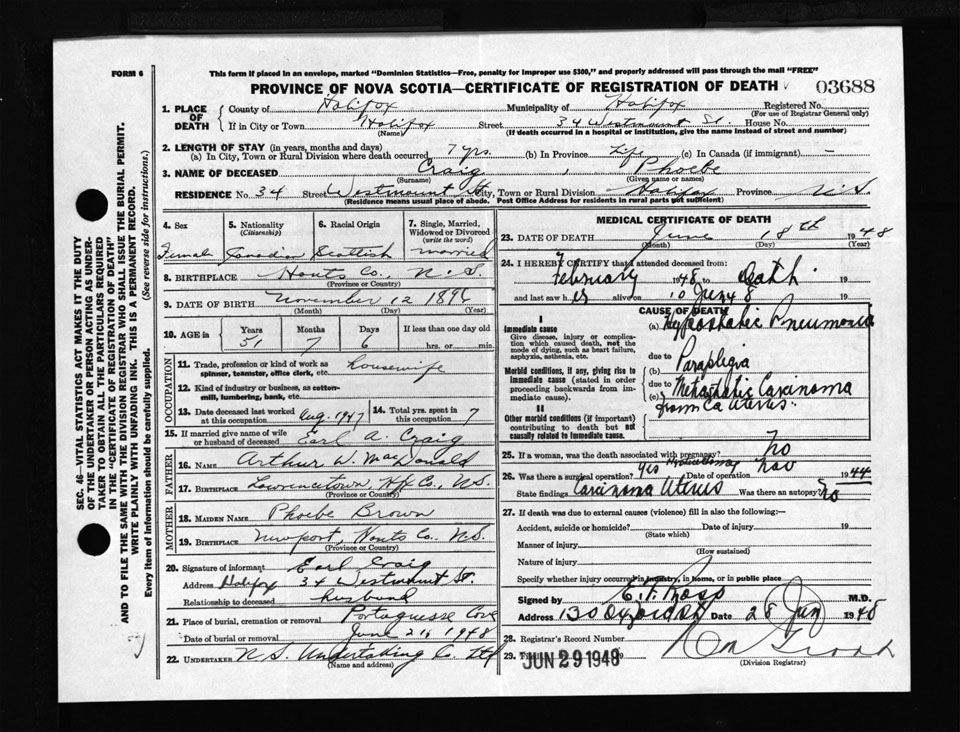 FORM 6
This form if placed in an envelope, marked "Dominion Statistics—Free, penalty for improper use $300," and properly addressed will pass through the mail "FREE"
PROVINCE OF NOVA SCOTIA—CERTIFICATE OF REGISTRATION OF DEATH 03688
1. PLACE OF DEATH
County of Halifax Municipality of Halifax Registered No.
(For use of Registrar General only)
If in City or Town Halifax Street 34 Westmount St. House No.
(Name) (If death occurred in a hospital or institution, give the name instead of street and number)
2. LENGTH OF STAY (in years, months and days)
(a) In City, Town or Rural Division where death occurred 7 yrs. (b) In Province Life (c) In Canada (if immigrant) —
3. NAME OF DECEASED Craig, Phoebe
(Surname) (Given name or names)
RESIDENCE No. 34 Street Westmount St. City, Town or Rural Division Halifax Province N.S.
(Residence means usual place of abode. Post Office Address for residents in rural parts not sufficient)
SEC. 46—VITAL STATISTICS ACT MAKES IT THE DUTY
OF THE UNDERTAKER OR PERSON ACTING AS UNDER-
TAKER TO OBTAIN ALL THE PARTICULARS REQUIRED
IN THE "CERTIFICATE OF REGISTRATION OF DEATH"
AND TO FILE THE SAME WITH THE DIVISION REGISTRAR WHO SHALL ISSUE THE BURIAL PERMIT.
WRITE PLAINLY WITH UNFADING INK. THIS IS A PERMANENT RECORD.
Every item of information should be carefully supplied. (See reverse side for instructions.)
4. Sex 5. Nationality (Citizenship) 6. Racial Origin 7. Single, Married, Widowed or Divorced (write the word)
Female Canadian Scottish married
8. BIRTHPLACE Hants Co., N.S.
(Province or Country)
9. DATE OF BIRTH November 12 1896
(Month) (Day) (Year)
10. AGE in Years Months Days If less than one day old
51 7 6 hrs. or min.
OCCUPATION
11. Trade, profession or kind of work as spinner, teamster, office clerk, etc. housewife
12. Kind of industry or business, as cotton-mill, lumbering, bank, etc.
13. Date deceased last worked at this occupation Aug. 1947 14. Total yrs. spent in this occupation 7
15. If married give name of wife or husband of deceased Earl A. Craig
FATHER
16. NAME Arthur W. MacDonald
17. BIRTHPLACE Lawrencetown, Hfx Co., N.S.
(Province or Country)
MOTHER
18. MAIDEN NAME Phoebe Brown
19. BIRTHPLACE Newport, Hants Co. N.S.
(Province or Country)
20. Signature of informant Earl Craig
Address Halifax 34 Westmount St.
Relationship to deceased husband
21. Place of burial, cremation or removal Portuguesse Cove
Date of burial or removal June 21 1948
22. UNDERTAKER N.S. Undertaking Co. Ltd
(Name and address)
MEDICAL CERTIFICATE OF DEATH
23. DATE OF DEATH June 18th 1948
(Month) (Day) (Year)
24. I HEREBY CERTIFY that I attended deceased from:
February 1948 to death 19
and last saw her alive on 10 Jun 48 19
CAUSE OF DEATH
I
Immediate cause
Give disease, injury or complication which caused death, not the mode of dying, such as heart failure, asphyxia, asthenia, etc.
(a) Hypostatic Pneumonia
due to
Paraplegia
Morbid conditions, if any, giving rise to immediate cause (stated in order proceeding backwards from immediate cause).
(b) due to Metastatic Carcinoma
(c) from Ca Uterus.
II
Other morbid conditions (if important) contributing to death but not causally related to immediate cause.
25. If a woman, was the death associated with pregnancy? no
26. Was there a surgical operation? Yes Date of operation Nov 1944
State findings Carcinoma Uterus Was there an autopsy? no
27. If death was due to external causes (violence) fill in also the following:—
Accident, suicide or homicide? Date of injury 19
(State which)
Manner of injury
(How sustained)
Nature of injury
Specify whether injury occurred in industry, in home, or in public place
Signed by M.D.
Address 130 Date 28 Jun 1948
28. Registrar's Record Number
29. JUN 29 1948 19
(Division Registrar)